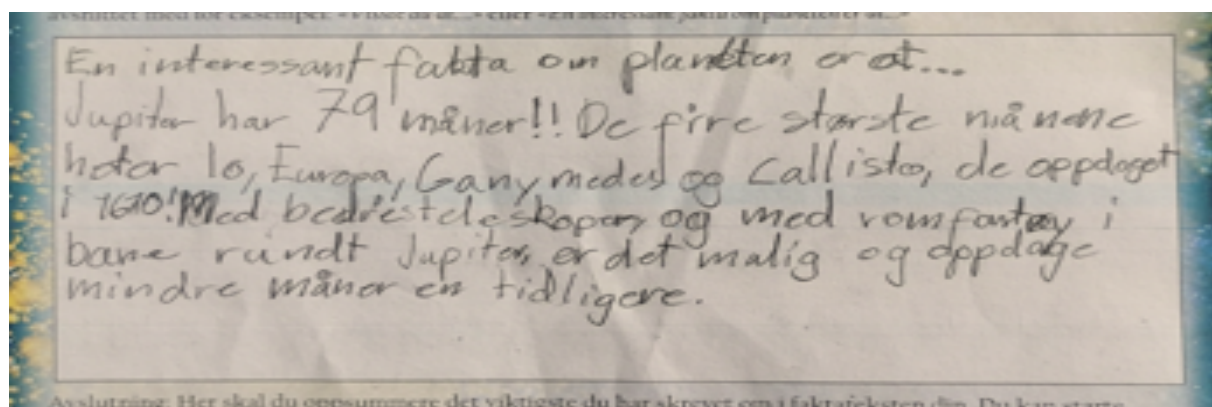 En interessant fakta om planeten er at...
Jupiter har 79 måner!! De fire største månene
heter Io, Europa, Ganymedes og Callisto, de oppdaget
i 1610! Med bedre teleskoper og med romfartøy i
bane rundt Jupiter, er det malig og oppdage
mindre måner en tidligere.
Avslutning: Her skal du oppsummere det viktigste du har skrevet om i faktateksten din. Du kan starte